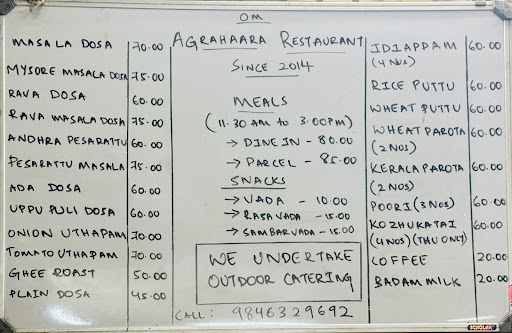 OM
AGRAHAARA RESTAURANT
SINCE 2014
MASALA DOSA 70.00
MYSORE MASALA DOSA 75.00
RAVA DOSA 60.00
RAVA MASALA DOSA 75.00
ANDHRA PESARATTU 60.00
PESARATTU MASALA 75.00
ADA DOSA 60.00
UPPU PULI DOSA 60.00
ONION UTHAPAM 70.00
TOMATO UTHAPAM 70.00
GHEE ROAST 50.00
PLAIN DOSA 45.00
MEALS
(11.30 AM to 3.00PM)
→ DINE IN - 80.00
→ PARCEL - 85.00
SNACKS
→ VADA - 10.00
→ RASA VADA - 15.00
→ SAMBAR VADA - 15.00
WE UNDERTAKE
OUTDOOR CATERING
CALL: 9846329692
IDIAPPAM 60.00
(4 NOS)
RICE PUTTU 60.00
WHEAT PUTTU 60.00
WHEAT PAROTA 60.00
(2 NOS)
KERALA PAROTA 60.00
(2 NOS)
POORI (3 NOS) 60.00
KOZHUKATAI 60.00
(4 NOS) (THU ONLY)
COFFEE 20.00
BADAM MILK 20.00
SCHOLAR